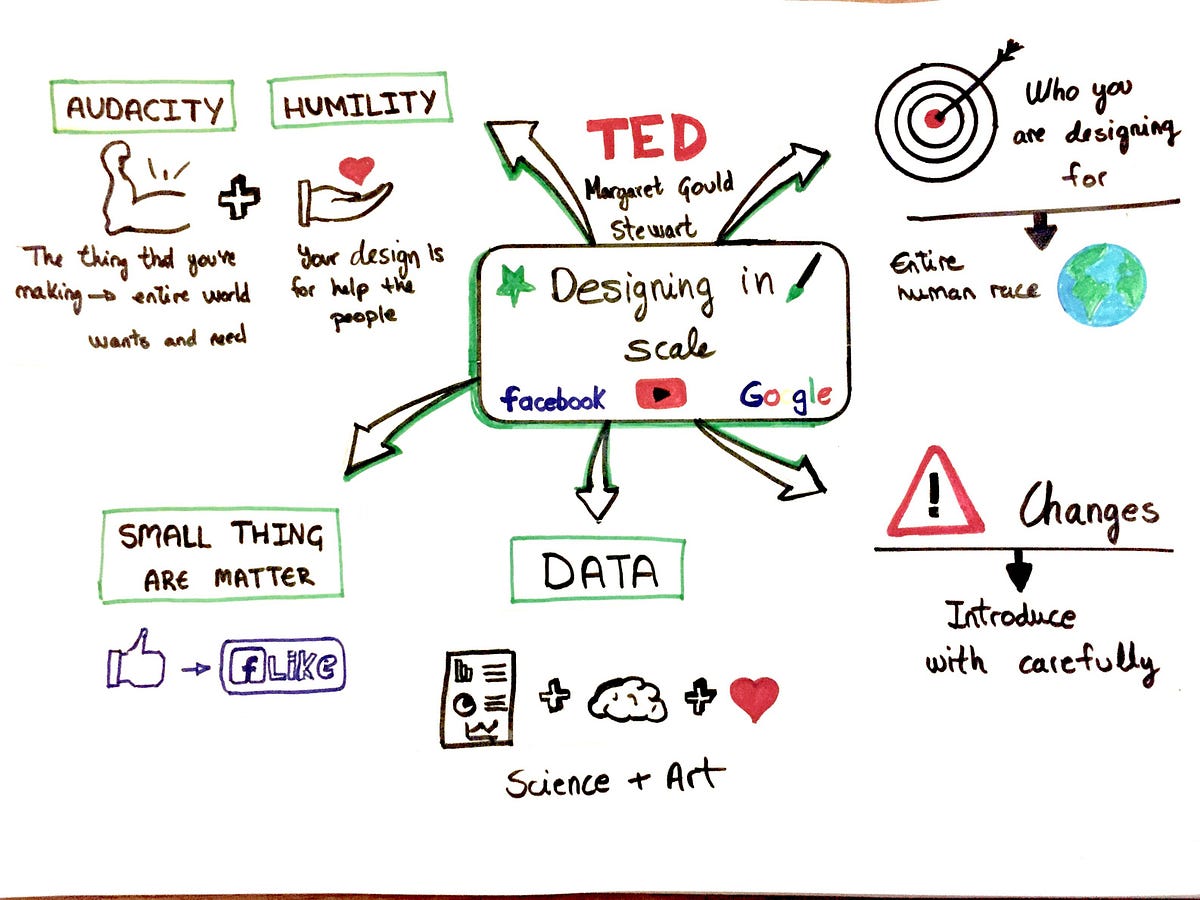 TED
Margaret Gould
Stewart
Designing in
scale
facebook
Google
AUDACITY
The thing that you've
making → entire world
wants and need
HUMILITY
Your design is
for help the
people
Who you
are designing
for
Entire
human race
SMALL THING
ARE MATTER
f LIKE
DATA
Science + Art
Changes
Introduce
with carefully